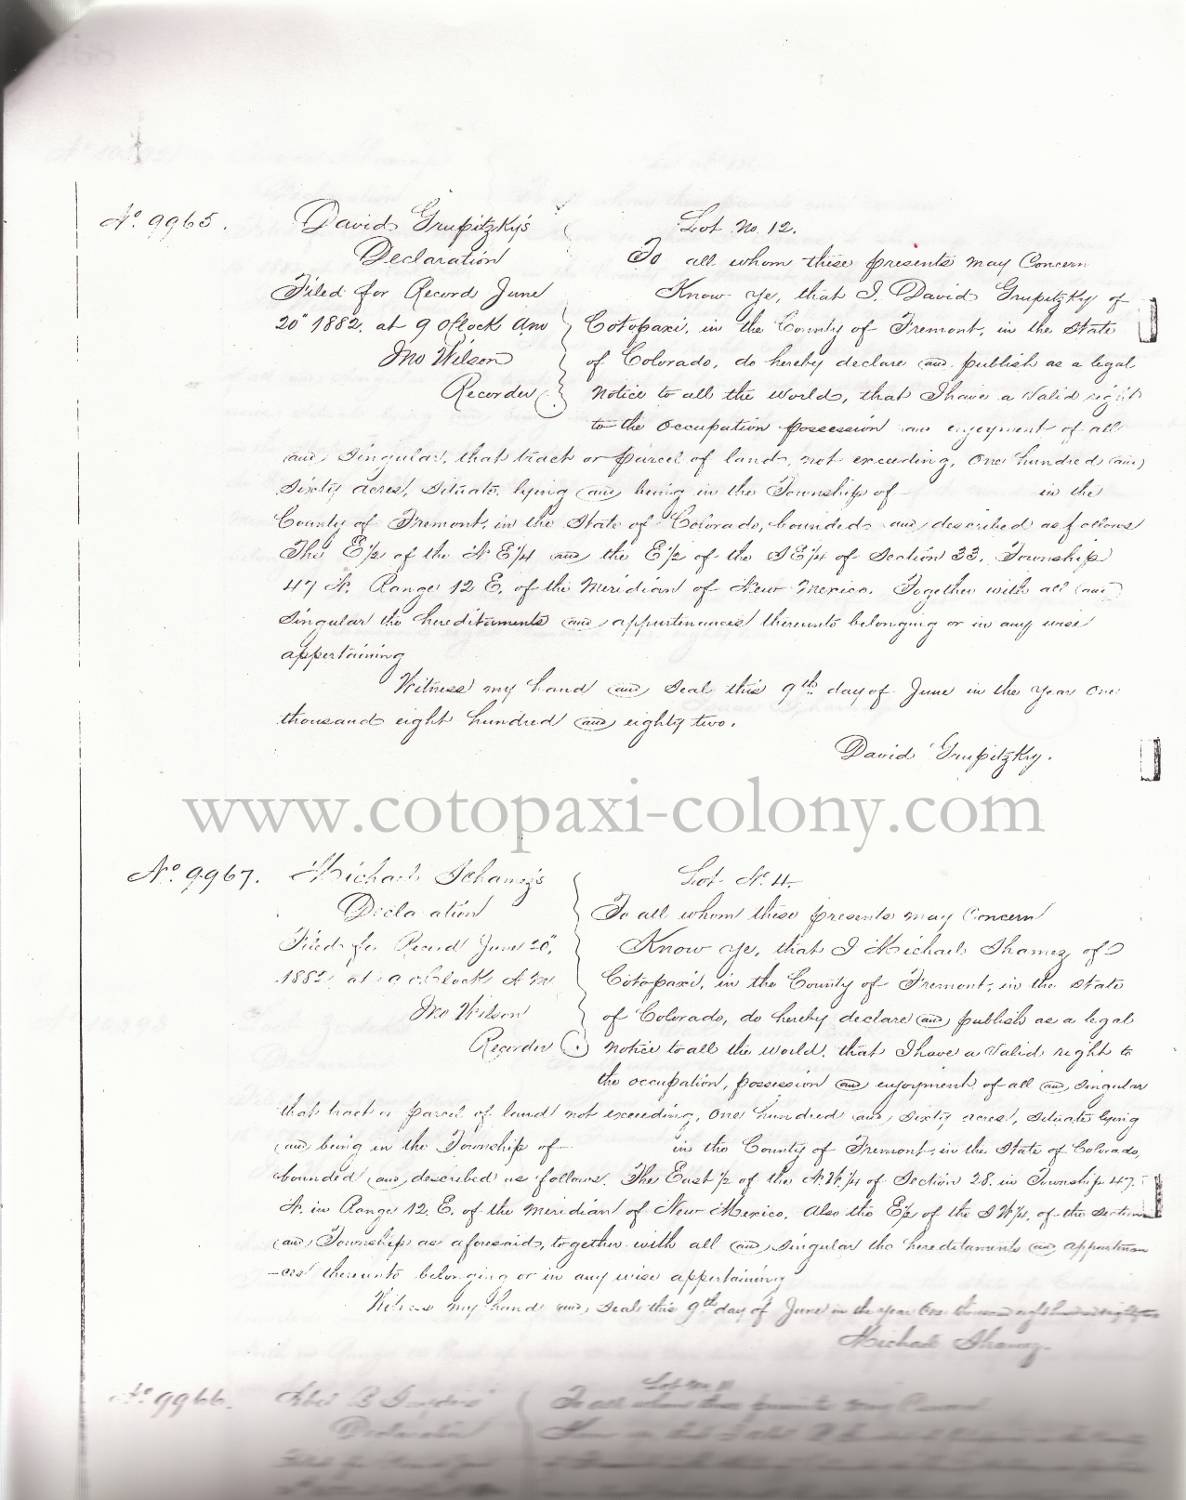 No 9965.
David Grupitzky's
Declaration
Filed for Record June
20" 1882. at 9 O'Clock Am
Jno Wilson
Recorder
Lot No. 12.
To all whom these presents may Concern
Know Ye, that I, David Grupitzky of
Cotopaxi, in the County of Fremont, in the State
of Colorado, do hereby declare and publish as a legal
notice to all the World, that I have a Valid right
to the Occupation possession and enjoyment of all
and Singular, that track or parcel of land, not exceeding, One hundred and
Sixty acres, Situate, lying and being in the Township of in the
County of Fremont, in the State of Colorado, bounded and described as follows
The E 1/2 of the N E 1/4 and the E 1/2 of the S E 1/4 of Section 33. Township
47 N. Range 12 E. of the Meridian of New Mexico. Together with all and
Singular the hereditaments and appurtinances thereunto belonging or in any wise
appertaining
Witness my hand and Seal this 9th day of June in the Year One
thousand eight hundred and eighty two.
David Grupitzky.
www.cotopaxi-colony.com
No 9967.
Michael Shamez's
Declaration
Filed for Record June 20",
1882, at 9 o'Clock A M
Jno Wilson
Recorder
Lot No 4.
To all whom these presents may Concern
Know Ye, that I Michael Shamez of
Cotopaxi, in the County of Fremont, in the State
of Colorado, do hereby declare and publish as a legal
notice to all the World, that I have a Valid right to
the occupation, possession and enjoyment of all and singular
that track or parcel of land not exceeding, One hundred and sixty acres, situate lying
and being in the Township of in the County of Fremont, in the State of Colorado,
bounded and described as follows. The East 1/2 of the N.W. 1/4 of Section 28. in Township 47.
N. in Range 12. E. of the Meridian of New Mexico. Also the E 1/2 of the S W 1/4. of the Section
and Township as aforesaid, together with all and singular the hereditaments and appurtenan
-ces thereunto belonging or in any wise appertaining
Witness my hand and seal this 9th day of June in the year One thousand eight hundred eighty two
Michael Shamez.
No 9966.
Declaration
To all whom these presents may Concern